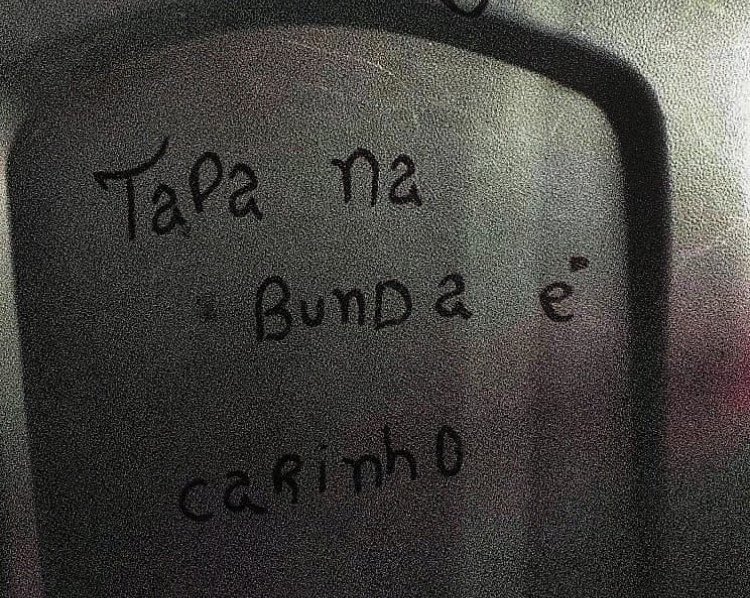 Tapa na
Bunda é
carinho